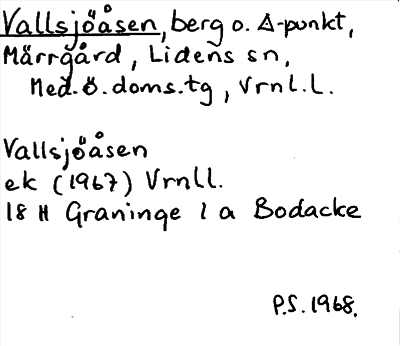 Vallsjöåsen, berg o. Δ-punkt,
Märrgård, Lidens sn,
Med.Ö.doms.tg, Vrnl.L.
Vallsjöåsen
ek (1967) Vrnll.
18 H Graninge 1 a Bodacke
P.S. 1968.